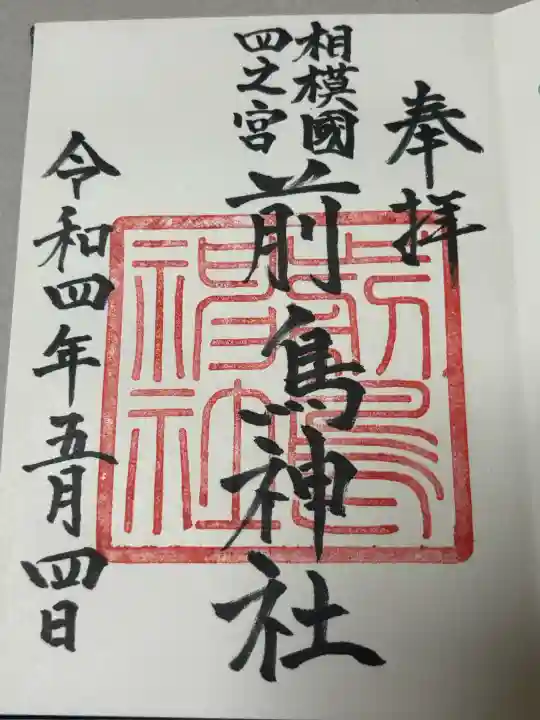 奉拝
相模國
四之宮
前鳥神社
前鳥神社
令和四年五月四日